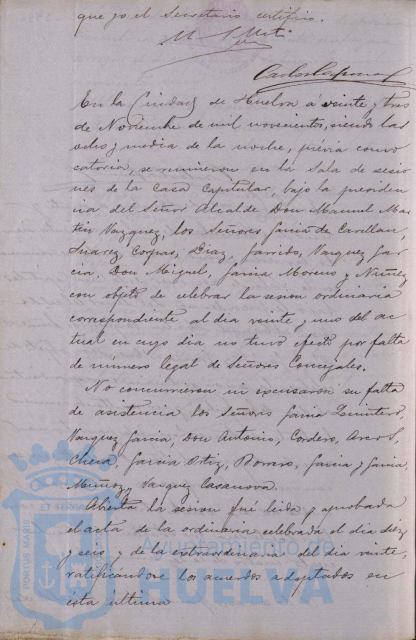 que yo el Secretario certifico.
M. Mtz
En la Ciudad de Huelva á veinte y tres
de Noviembre de mil novecientos, siendo las
ocho y media de la noche, prévia convo
catoria, se reunieron en la Sala de sesio
nes de la Casa Capitular, bajo la presiden
cia del Señor Alcalde Don Manuel Mar
tin Vazquez, los Señores Garcia de Cevallan,
Suarez, Diaz, Garrido, Vazquez Gar
cia, Don Miguel, Garcia Moreno y Nuñez
con objeto de celebrar la sesion ordinaria
correspondiente al dia veinte y uno del ac
tual en cuyo dia no tuvo efecto por falta
de número legal de Señores Concejales.
No concurrieron ni excusaron su falta
de asistencia los Señores Garcia Quintero,
Vazquez Garcia, Don Antonio, Cordero,
Checa, Garcia Ortiz, Garcia y Garcia,
Muñoz y Vazquez Casanova.
Abierta la sesion fué leida y aprobada
el acta de la ordinaria celebrada el dia diez
y seis y de la extraordinaria del dia veinte,
ratificándose los acuerdos adoptados en
esta última
PORTUS MARIS ET TERRÆ
Ayuntamiento de
HUELVA